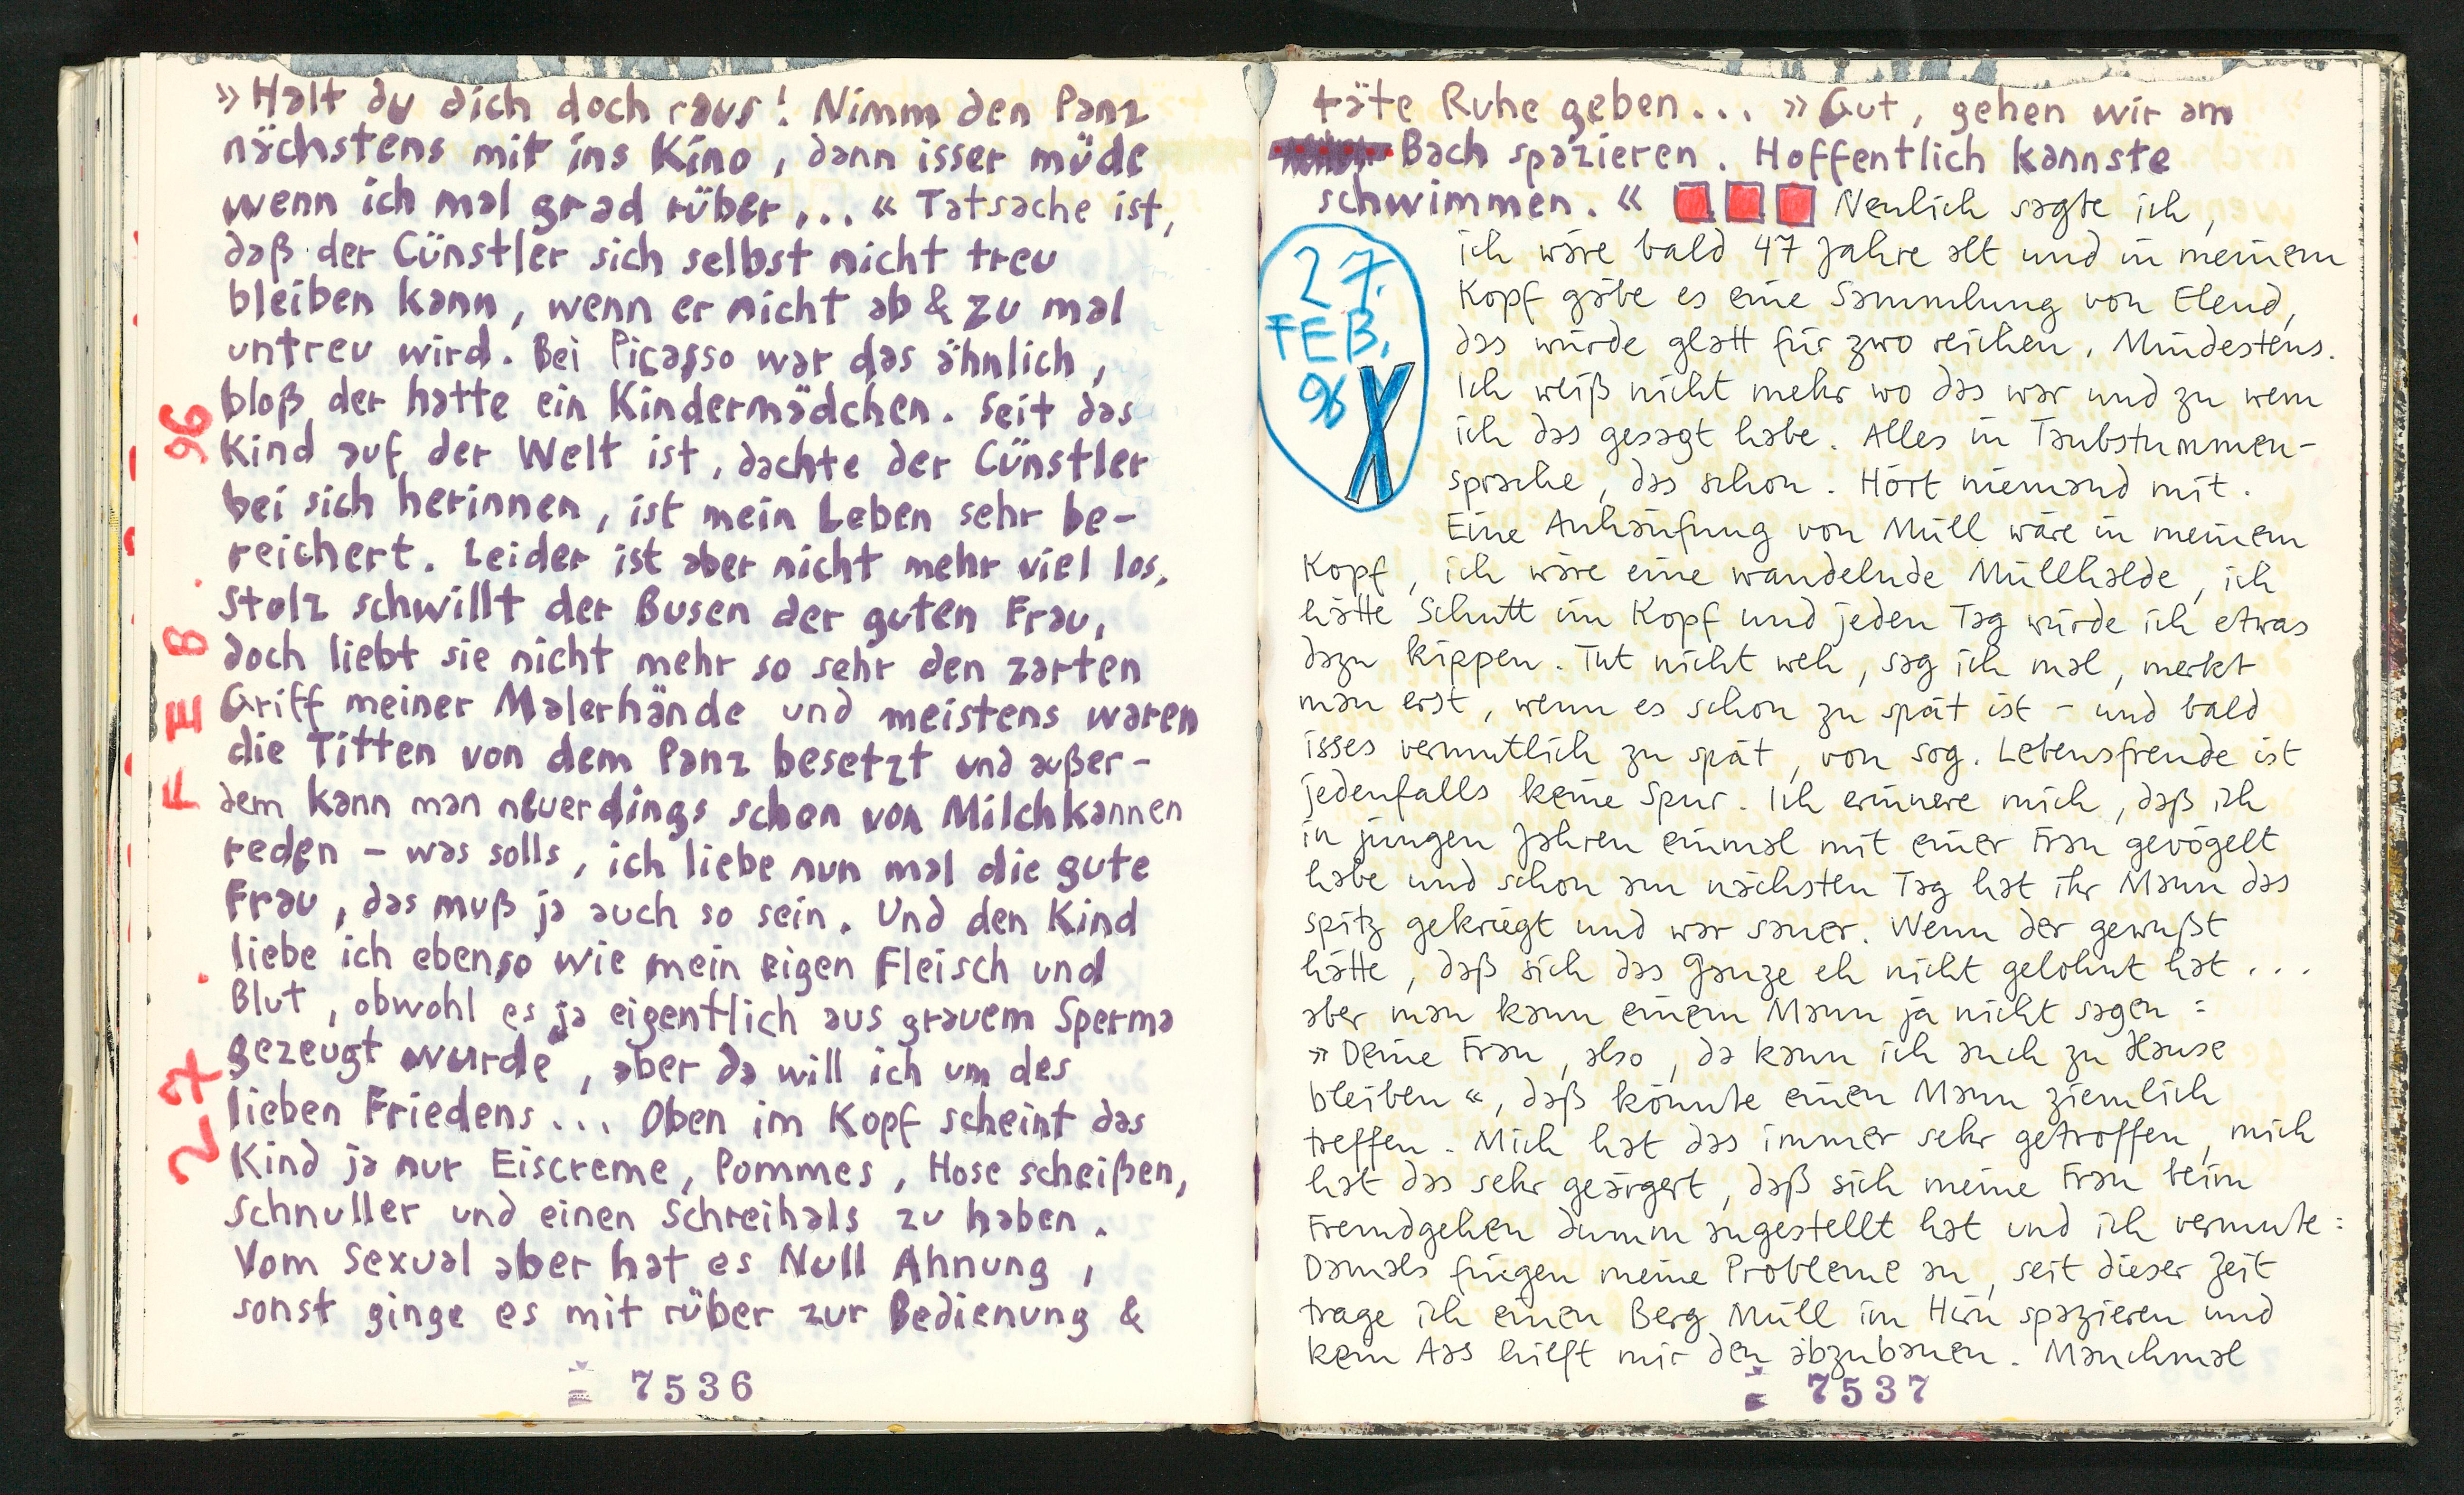 »Halt du dich doch raus! Nimm den Panz
nächstens mit ins Kino, dann isser müde
wenn ich mal grad rüber...« Tatsache ist,
daß der Cünstler sich selbst nicht treu
bleiben kann, wenn er nicht ab & zu mal
untreu wird. Bei Picasso war das ähnlich,
bloß der hatte ein Kindermädchen. Seit das
Kind auf der Welt ist, dachte der Cünstler
bei sich herinnen, ist mein Leben sehr be-
reichert. Leider ist aber nicht mehr viel los.
Stolz schwillt der Busen der guten Frau,
doch liebt sie nicht mehr so sehr den zarten
Griff meiner Malerhände und meistens waren
die Titten von dem Panz besetzt und außer-
dem kann man neuerdings schon von Milchkannen
reden - was solls, ich liebe nun mal die gute
Frau, das muß ja auch so sein. Und den Kind
liebe ich ebenso wie mein eigen Fleisch und
Blut, obwohl es ja eigentlich aus grauem Sperma
gezeugt wurde, aber da will ich um des
lieben Friedens... Oben im Kopf scheint das
Kind ja nur Eiscreme, Pommes, Hose scheißen,
Schnuller und einen Schreihals zu haben.
Vom Sexual aber hat es Null Ahnung,
sonst ginge es mit rüber zur Bedienung &
27. FEB. 96
7536
täte Ruhe geben... »Gut, gehen wir am
Bach spazieren. Hoffentlich kannste
schwimmen.« Neulich sagte ich,
ich wäre bald 47 Jahre alt und in meinem
Kopf gäbe es eine Sammlung von Elend,
das würde glatt für zwo reichen. Mindestens.
Ich weiß nicht mehr wo das war und zu wem
ich das gesagt habe. Alles in Taubstummen-
sprache, das schon. Hört niemand mit.
Eine Anhäufung von Müll wäre in meinem
Kopf, ich wäre eine wandelnde Müllhalde, ich
hätte Schutt im Kopf und jeden Tag würde ich etwas
dazu kippen. Tut nicht weh, sag ich mal, merkt
man erst, wenn es schon zu spät ist - und bald
isses vermutlich zu spät, von sog. Lebensfreude ist
jedenfalls keine Spur. Ich erinnere mich, daß ich
in jungen Jahren einmal mit einer Frau gevögelt
habe und schon am nächsten Tag hat ihr Mann das
spitz gekriegt und war sauer. Wenn der gewußt
hätte, daß sich das Ganze eh nicht gelohnt hat...
aber man kann einem Mann ja nicht sagen:
»Deine Frau, also, da kann ich auch zu Hause
bleiben«, daß könnte einen Mann ziemlich
treffen. Mich hat das immer sehr getroffen, mich
hat das sehr geärgert, daß sich meine Frau beim
Fremdgehen dumm angestellt hat und ich vermute:
Damals fingen meine Probleme an, seit dieser Zeit
trage ich einen Berg Müll im Hirn spazieren und
kein Aas hilft mir den abzubauen. Manchmal
27.
FEB.
96
X
7537